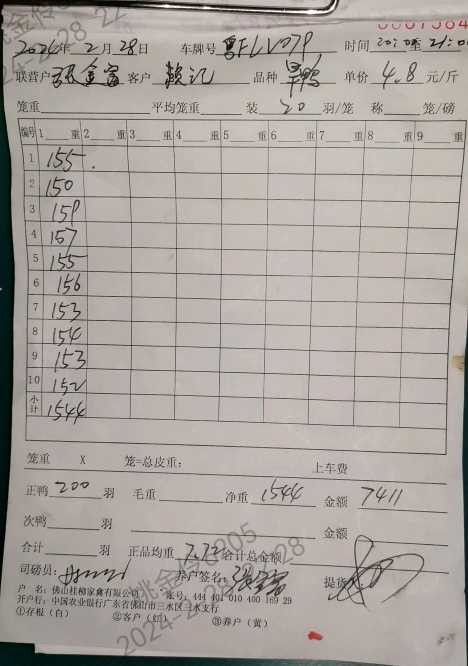 2024年 2月 28日 车牌号 粤FLV079 时间 20:0 至 21:00
联营户 张金富 客户 赖记 品种 旱鸭 单价 4.8 元/斤
笼重: 平均笼重 装 20 羽/笼 称 笼/磅
编号 1 重 2 重 3 重 4 重 5 重 6 重 7 重 8 重 9 重
1 155
2 150
3 159
4 157
5 155
6 156
7 153
8 154
9 153
10 152
小计 1544
笼重 X 笼=总皮重: 上车费
正鸭 200 羽 毛重 净重 1544 金额 7411
次鸭 羽 金额
合计 羽 正品均重 7.72 合计总金额
司磅员: 养户签名: 提货
户 名: 佛山桂柳家禽有限公司 账号: 444 401 010 400 169 29
开户行: 中国农业银行广东省佛山市三水区三水支行
①存根(白) ②客户(红) ③养户(黄)